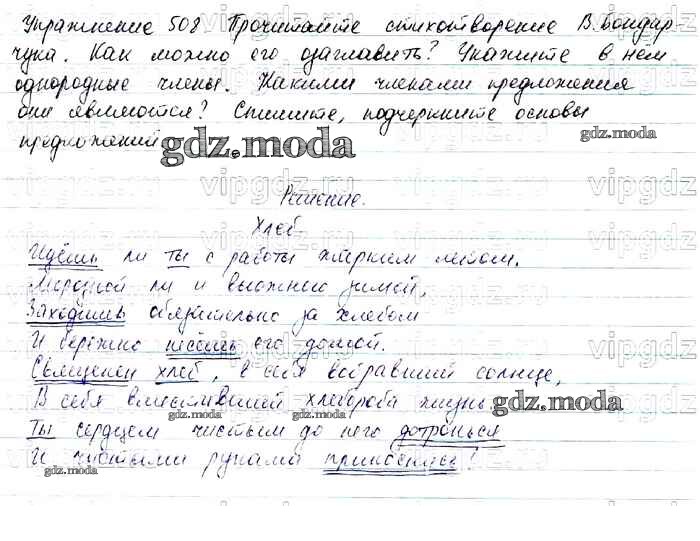 Упражнение 508 Прочитайте стихотворение В. Бондар
чука. Как можно его озаглавить? Укажите в нём
однородные члены. Какими членами предложения
они являются? Спишите, подчеркните основы
предложений
gdz.moda
gdz.moda
Решение.
Хлеб.
Идёшь ли ты с работы жарким летом.
Морозной ли и вьюжною зимой,
Заходишь обязательно за хлебом
И бережно несёшь его домой.
Священен хлеб, в себя вобравший солнце,
В себя вместивший хлебороба жизнь
gdz.moda
gdz.moda
gdz.moda
Ты сердцем чистым до него дотронься
И чистыми руками прикоснись!
gdz.moda